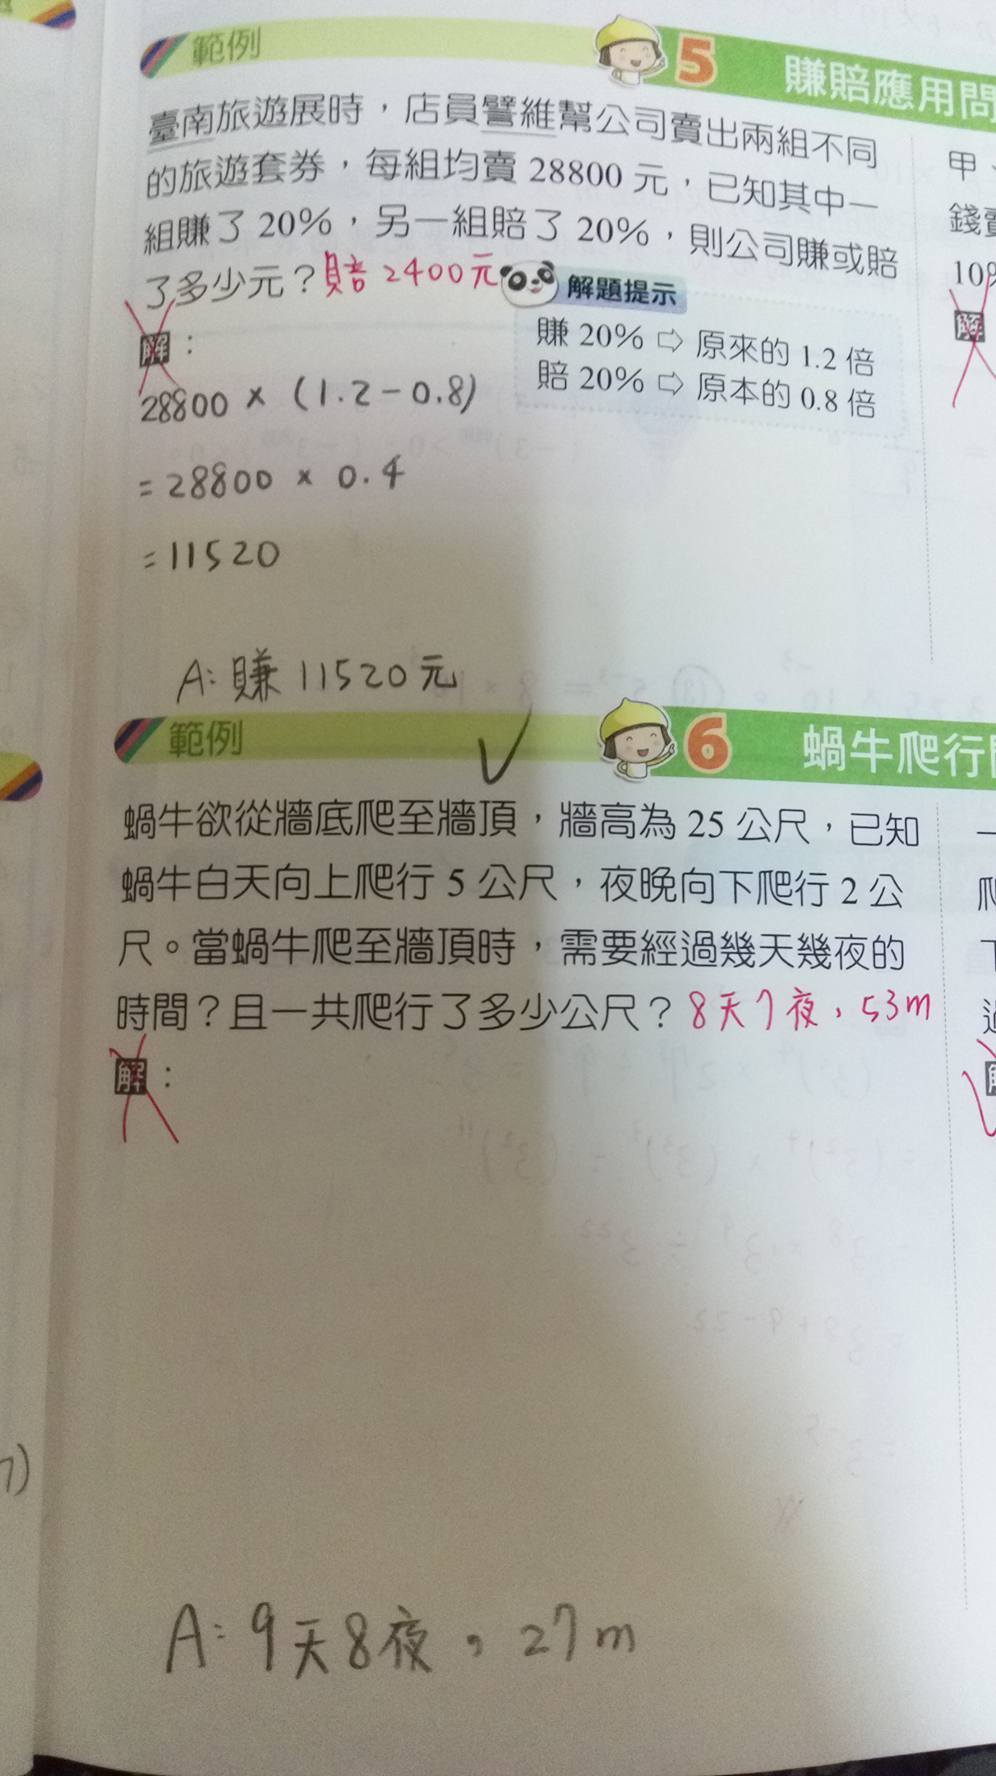 範例 5 賺賠應用問
臺南旅遊展時，店員譬維幫公司賣出兩組不同
的旅遊套券，每組均賣 28800 元，已知其中一
組賺了 20%，另一組賠了 20%，則公司賺或賠
了多少元？賠 2400 元
解題提示
賺 20% ⇨ 原來的 1.2 倍
賠 20% ⇨ 原本的 0.8 倍
解：
28800 × (1.2-0.8)
= 28800 × 0.4
= 11520
A: 賺 11520 元
範例 6 蝸牛爬行
蝸牛欲從牆底爬至牆頂，牆高為 25 公尺，已知
蝸牛白天向上爬行 5 公尺，夜晚向下爬行 2 公
尺。當蝸牛爬至牆頂時，需要經過幾天幾夜的
時間？且一共爬行了多少公尺？8天7夜，53m
解：
A: 9天8夜，27m
甲、
錢賣
10%
解
一
爬
下
過
7)